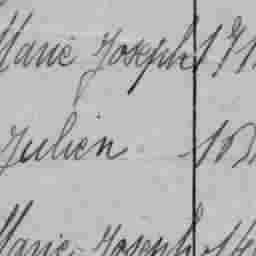 Marie Joseph 171
Julien
Marie Joseph